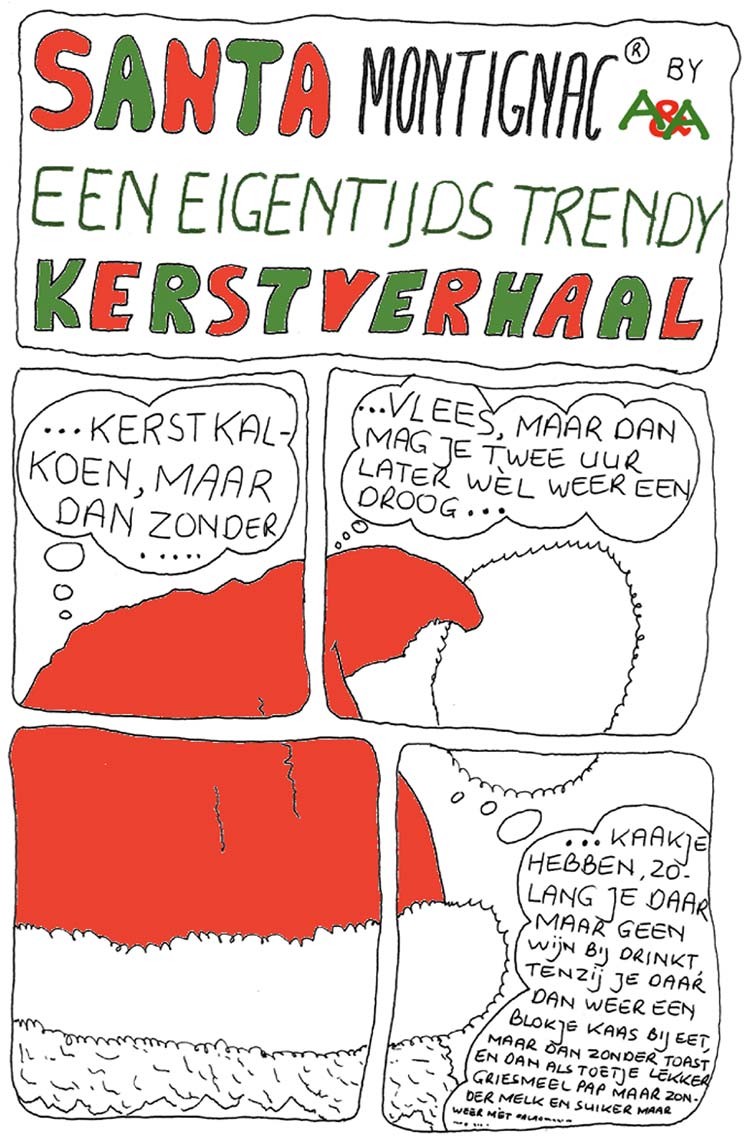 SANTA MONTIGNAC® BY A&A
EEN EIGENTIJDS TRENDY
KERSTVERHAAL
...KERSTKAL-
KOEN, MAAR
DAN ZONDER
.....
...VLEES, MAAR DAN
MAG JE TWEE UUR
LATER WÈL WEER EEN
DROOG...
...KAAKJE
HEBBEN, ZO-
LANG JE DAAR
MAAR GEEN
WIJN BIJ DRINKT,
TENZIJ JE DAAR
DAN WEER EEN
BLOKJE KAAS BIJ EET,
MAAR DAN ZONDER TOAST
EN DAN ALS TOETJE LEKKER
GRIESMEEL PAP MAAR ZON-
DER MELK EN SUIKER MAAR
WEER MET